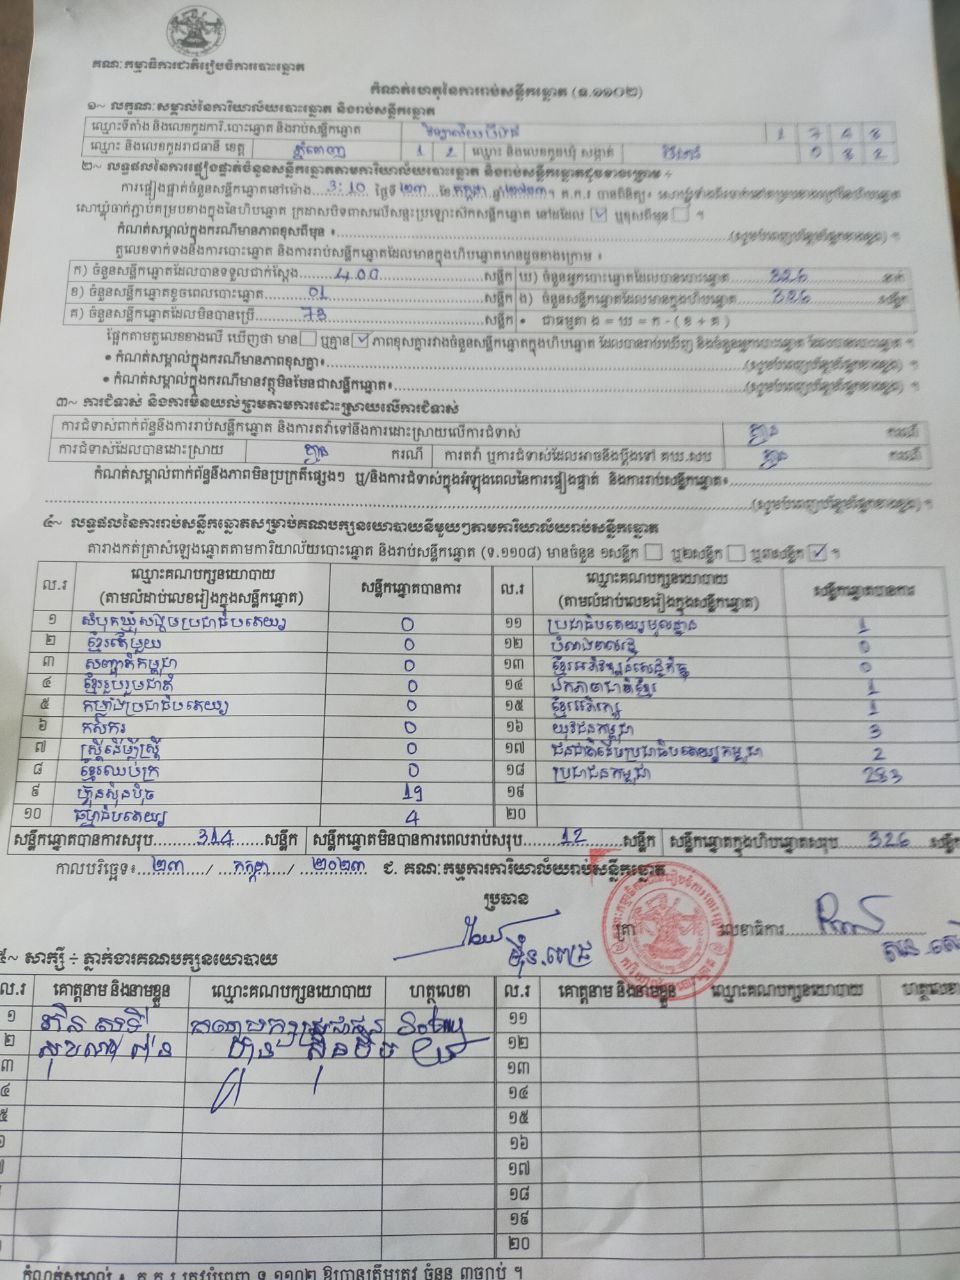 គណៈកម្មាធិការជាតិរៀបចំការបោះឆ្នោត
កំណត់ហេតុនៃការរាប់សន្លឹកឆ្នោត (ទ.១១០២)
១~ លក្ខណៈសម្គាល់នៃការិយាល័យបោះឆ្នោត និងរាប់សន្លឹកឆ្នោត
ឈ្មោះទីតាំង និងលេខកូដការិ.បោះឆ្នោត និងរាប់សន្លឹកឆ្នោត
ឈ្មោះ និងលេខកូដរាជធានី ខេត្ត ភ្នំពេញ 1 2 ឈ្មោះ និងលេខកូដឃុំ សង្កាត់
២~ លទ្ធផលនៃការផ្ទៀងផ្ទាត់ចំនួនសន្លឹកឆ្នោតតាមការិយាល័យបោះឆ្នោត និងរាប់សន្លឹកឆ្នោតដូចខាងក្រោម ÷
ការផ្ទៀងផ្ទាត់ចំនួនសន្លឹកឆ្នោតនៅម៉ោង 3:10 ថ្ងៃទី ២៣ ខែ កក្កដា ឆ្នាំ ២០២៣។ គ.ក.រ បានពិនិត្យ៖
សោឃ្មុំចាក់ភ្ជាប់គម្របខាងក្នុងនៃហិបឆ្នោត ក្រដាសបិទតាសលើសន្ទះប្រឡោះស៊កសន្លឹកឆ្នោត នៅដដែល ☑ ឬខុសពីមុន ☐ ។
កំណត់សម្គាល់ក្នុងករណីមានភាពខុសពីមុន ៖
តួលេខទាក់ទងនឹងការបោះឆ្នោត និងការរាប់សន្លឹកឆ្នោតដែលមានក្នុងហិបឆ្នោតមានដូចខាងក្រោម ៖
ក) ចំនួនសន្លឹកឆ្នោតដែលបានទទួលជាក់ស្តែង 400 សន្លឹក ឃ) ចំនួនអ្នកបោះឆ្នោតដែលបានបោះឆ្នោត 326 នាក់
ខ) ចំនួនសន្លឹកឆ្នោតខូចពេលបោះឆ្នោត 01 សន្លឹក ង) ចំនួនសន្លឹកឆ្នោតដែលមានក្នុងហិបឆ្នោត 326 សន្លឹក
គ) ចំនួនសន្លឹកឆ្នោតដែលមិនបានប្រើ 73 សន្លឹក • ជាធម្មតា ង = ឃ = ក - ( ខ + គ )
ផ្អែកតាមតួលេខខាងលើ ឃើញថា មាន ☐ ឬគ្មាន ☑ ភាពខុសគ្នារវាងចំនួនសន្លឹកឆ្នោតក្នុងហិបឆ្នោត ដែលបានរាប់ឃើញ និងចំនួនអ្នកបោះឆ្នោត ដែលបានបោះឆ្នោត ។
• កំណត់សម្គាល់ក្នុងករណីមានភាពខុសគ្នា៖
• កំណត់សម្គាល់ក្នុងករណីមានវត្ថុមិនមែនជាសន្លឹកឆ្នោត៖
៣~ ការជំទាស់ និងការមិនយល់ព្រមតាមការដោះស្រាយលើការជំទាស់
ការជំទាស់ពាក់ព័ន្ធនឹងការរាប់សន្លឹកឆ្នោត និងការតវ៉ាទៅនឹងការដោះស្រាយលើការជំទាស់ គ្មាន ករណី
ការជំទាស់ដែលបានដោះស្រាយ គ្មាន ករណី ការតវ៉ា ឬការជំទាស់ដែលអាចនឹងប្តឹងទៅ គឃ.សប គ្មាន ករណី
កំណត់សម្គាល់ពាក់ព័ន្ធនឹងភាពមិនប្រក្រតីផ្សេងៗ ឬ/និងការជំទាស់ក្នុងអំឡុងពេលនៃការផ្ទៀងផ្ទាត់ និងការរាប់សន្លឹកឆ្នោត៖
៤~ លទ្ធផលនៃការរាប់សន្លឹកឆ្នោតសម្រាប់គណបក្សនយោបាយនីមួយៗតាមការិយាល័យរាប់សន្លឹកឆ្នោត
តារាងកត់ត្រាសំឡេងឆ្នោតតាមការិយាល័យបោះឆ្នោត និងរាប់សន្លឹកឆ្នោត (ទ.១១០៨) មានចំនួន ១សន្លឹក ☐ ឬ២សន្លឹក ☐ ឬ៣សន្លឹក ☑ ។
ល.រ ឈ្មោះគណបក្សនយោបាយ (តាមលំដាប់លេខរៀងក្នុងសន្លឹកឆ្នោត) សន្លឹកឆ្នោតបានការ ល.រ ឈ្មោះគណបក្សនយោបាយ (តាមលំដាប់លេខរៀងក្នុងសន្លឹកឆ្នោត) សន្លឹកឆ្នោតបានការ
១ សំបុកឃ្មុំសង្គមប្រជាធិបតេយ្យ 0 ១១ ប្រជាធិបតេយ្យមូលដ្ឋាន 1
២ ខ្មែរតែមួយ 0 ១២ 0
៣ សញ្ជាតិកម្ពុជា 0 ១៣ ខ្មែរអភិវឌ្ឍន៍សេដ្ឋកិច្ច 0
៤ ខ្មែររួបរួមជាតិ 0 ១៤ ឯកភាពជាតិខ្មែរ 1
៥ កម្លាំងប្រជាធិបតេយ្យ 0 ១៥ ខ្មែរអភិរក្ស 1
៦ កសិករ 0 ១៦ យុវជនកម្ពុជា 3
៧ ស្ត្រីដើម្បីស្ត្រី 0 ១៧ ជនជាតិដើមប្រជាធិបតេយ្យកម្ពុជា 2
៨ ខ្មែរឈប់ក្រ 0 ១៨ ប្រជាជនកម្ពុជា 283
៩ ហ៊្វុនស៊ិនប៉ិច 19 ១៩
១០ ធម្មាធិបតេយ្យ 4 ២០
សន្លឹកឆ្នោតបានការសរុប 314 សន្លឹក សន្លឹកឆ្នោតមិនបានការពេលរាប់សរុប 12 សន្លឹក សន្លឹកឆ្នោតក្នុងហិបឆ្នោតសរុប 326 សន្លឹក
កាលបរិច្ឆេទ៖ ២៣ / កក្កដា / ២០២៣ ជ. គណៈកម្មការការិយាល័យរាប់សន្លឹកឆ្នោត
ប្រធាន
ត្រា លេខាធិការ
៥~ សាក្សី ÷ ភ្នាក់ងារគណបក្សនយោបាយ
ល.រ គោត្តនាម និងនាមខ្លួន ឈ្មោះគណបក្សនយោបាយ ហត្ថលេខា ល.រ គោត្តនាម និងនាមខ្លួន ឈ្មោះគណបក្សនយោបាយ ហត្ថលេខា
១ ១១
២ ១២
៣ ១៣
៤ ១៤
៥ ១៥
១៦
១៧
១៨
១៩
២០
កំណត់សម្គាល់ ៖ គ.ក.រ ត្រូវបំពេញ ទ.១១០២ ឱ្យបានត្រឹមត្រូវ ចំនួន ៣ច្បាប់ ។